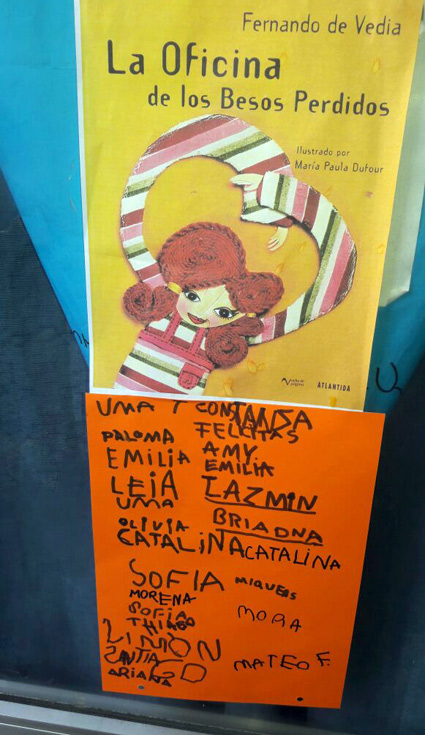 Fernando de Vedia
La Oficina
de los Besos Perdidos
Ilustrado por
María Paula Dufour
ATLANTIDA
UMA T CONSTANSA
PALOMA FELCITAS
EMILIA AMY
EMILIA
LEIA LAZMIN
UMA
OLIVIA BRIADNA
CATALINA CATALINA
SOFIA
MORENA
SOFIA MORA
THIAGO
SANTIAGO MATEO F.
ARIANA